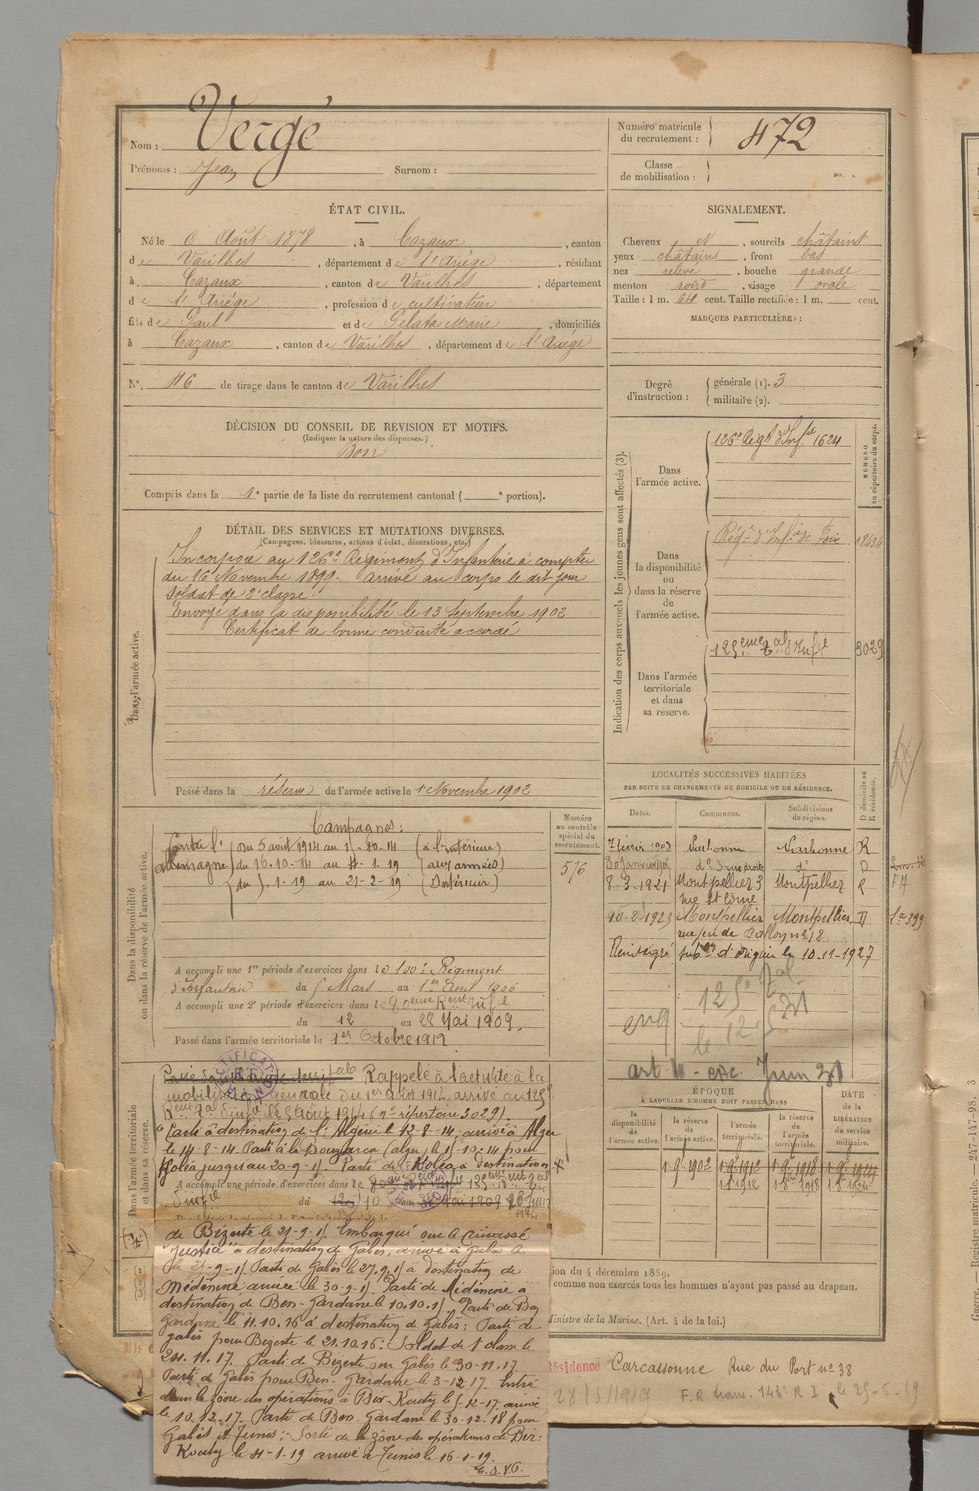 Nom : Vergé
Prénoms : Jean Surnom :
Numéro matricule du recrutement : 472
Classe de mobilisation :
ÉTAT CIVIL.
Né le Août 1878, à Cazaux, canton
de Varilhes, département de l'Ariège, résidant
à Cazaux, canton de Varilhes, département
de l'Ariège, profession de cultivateur
fils de Paul et de Pélata Marie, domiciliés
à Cazaux, canton de Varilhes, département de l'Ariège
N° 46 de tirage dans le canton de Varilhes
SIGNALEMENT.
Cheveux N, sourcils châtains
yeux châtains, front bas
nez relevé, bouche grande
menton rond, visage ovale
Taille : 1 m. 64 cent. Taille rectifiée : 1 m. cent.
MARQUES PARTICULIÈRES :
Degré d'instruction : générale (1). 3
militaire (2).
DÉCISION DU CONSEIL DE REVISION ET MOTIFS.
(Indiquer la nature des dispenses.)
Bon
Compris dans la 1e partie de la liste du recrutement cantonal ( e portion).
DÉTAIL DES SERVICES ET MUTATIONS DIVERSES.
(Campagnes, blessures, actions d'éclat, décorations, etc.)
Dans l'armée active.
Incorporé au 126e Régiment d'Infanterie à compter
du 16 Novembre 1899. Arrivé au corps le dit jour
soldat de 2e classe.
Envoyé dans la disponibilité le 13 Septembre 1902
Certificat de bonne conduite accordé
Passé dans la réserve de l'armée active le 1 Novembre 1902
Indication des corps auxquels les jeunes gens sont affectés (3).
NUMÉRO au répertoire du corps.
Dans l'armée active.
126e Régt d'Infie 1624
Dans la disponibilité ou dans la réserve de l'armée active.
Régt d'Infie de Foix
Dans l'armée territoriale et dans sa réserve.
125eme tal d'Infie 3029
LOCALITÉS SUCCESSIVES HABITÉES
PAR SUITE DE CHANGEMENTS DE DOMICILE OU DE RÉSIDENCE.
Dates. Communes. Subdivisions de région. D domicile ou R résidence.
7 février 1903 Narbonne Narbonne R
do do D
8-3-1921 Montpellier 3 Montpellier R
rue St Côme
10-2-1923 Montpellier Montpellier D
rue jeu de Ballon no 12
Renseigné subon d'origine le 10-11-1927
Dans la disponibilité ou dans la réserve de l'armée active.
Numéro au contrôle spécial du recrutement.
576
Campagnes :
Contre l'Allemagne
du 5 août 1914 au 15-10-14 (à l'intérieur)
du 16-10-14 au 4-1-19 (aux armées)
du 5-1-19 au 21-2-19 (Intérieur)
A accompli une 1re période d'exercices dans le 100e Régiment
d'Infanterie du 5 Mars au 1er Avril 1906
A accompli une 2e période d'exercices dans le
du 12 au 28 Mai 1909.
Passé dans l'armée territoriale le 1er Octobre 1912
125e tal
le 12
art 4 Juin
ÉPOQUE
À LAQUELLE L'HOMME DOIT PASSER DANS
DATE de la LIBÉRATION du service militaire.
la disponibilité de l'armée active. la réserve de l'armée active. l'armée territoriale. la réserve de l'armée territoriale.
Dans l'armée territoriale et dans sa réserve.
Rappelé à l'activité à la
mobilisation générale du 1er Août 1914 arrivé au 125e
Régt tal d'infie le 5 août 1914 (no répertoire 3029).
Parti à destination de l'Algérie le 12-8-14. arrivé à Alger
le 14-8-14. Parti à la Bouzaréa (alger) le 15-10-14 pour
Koléa jusqu'au 20-9-15. Parti de Koléa à destination
A accompli une période d'exercices dans le 125eme
d'infie du au
de Bizerte le 21-9-15. Embarqué sur le cuirassé
"Justice" à destination de Gabès, arrivé à Gabès le
Parti de Gabès le 27.9.15 à destination de
Médenine arrivé le 30-9-15. Parti de Médenine à
destination de Ben-Gardane le 10.10.15. Parti de Ben
Gardane le 11.10.16 à destination de Gabès : Parti de
gabès pour Bizerte le 21.10.16 : Soldat de 1e classe le
24.11.17. Parti de Bizerte sur Gabès le 30-11-17.
Parti de Gabès pour Ben-Gardane le 3-12-17. Entré
dans la zône des opérations à Bir-Kouty le 5-12-17. arrivé
le 10.12.17. Parti de Ben Gardane le 30-12-18 pour
Gabès et Tunis : Sorti de la zône des opérations de Bir-
Kouty le 4-1-19 arrivé à Tunis le 16-1-19.
T.S.V.P.
ion du 4 décembre 1889.
comme non exercés tous les hommes n'ayant pas passé au drapeau.
Ministre de la Marine. (Art. 4 de la loi.)
Résidence Carcassonne Rue du Port no 38
28/3/1919 F.R trans. 143e R I le 25-6-19
Guerre. Registre matricule. 247-147-98. 3